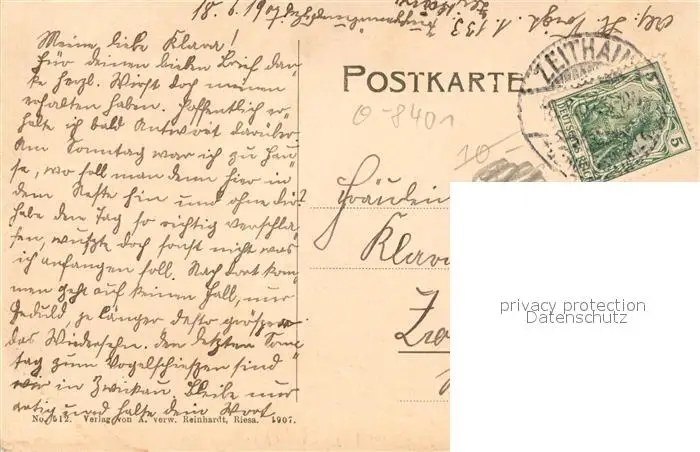 18.6.1907
Meine liebe Klara!
Für deinen lieben Brief dan-
ke herzl. Wirst doch meinen
erhalten haben. Hoffentlich er-
halte ich bald Antwort darüber
Am Sonntag war ich zu Hau-
se, wo soll man denn hier in
dem Neste hin und ohne dir?
habe den Tag so richtig verschla-
fen, wußte doch sonst nicht was
ich anfangen soll. Nach dort kom-
men geht auf keinen Fall, nur
Geduld, je länger desto grösser
das Wiedersehn. Den letzten Sonn-
tag zum Vogelschießen sind
wir in Zwickau. Bleibe nur
artig und halte dein Wort
No. 612. Verlag von A. verw. Reinhardt, Riesa. 1907.
POSTKARTE
ZEITHAIN
5
5
0-8401
10-
Fräulein
Klara
privacy protection
Datenschutz